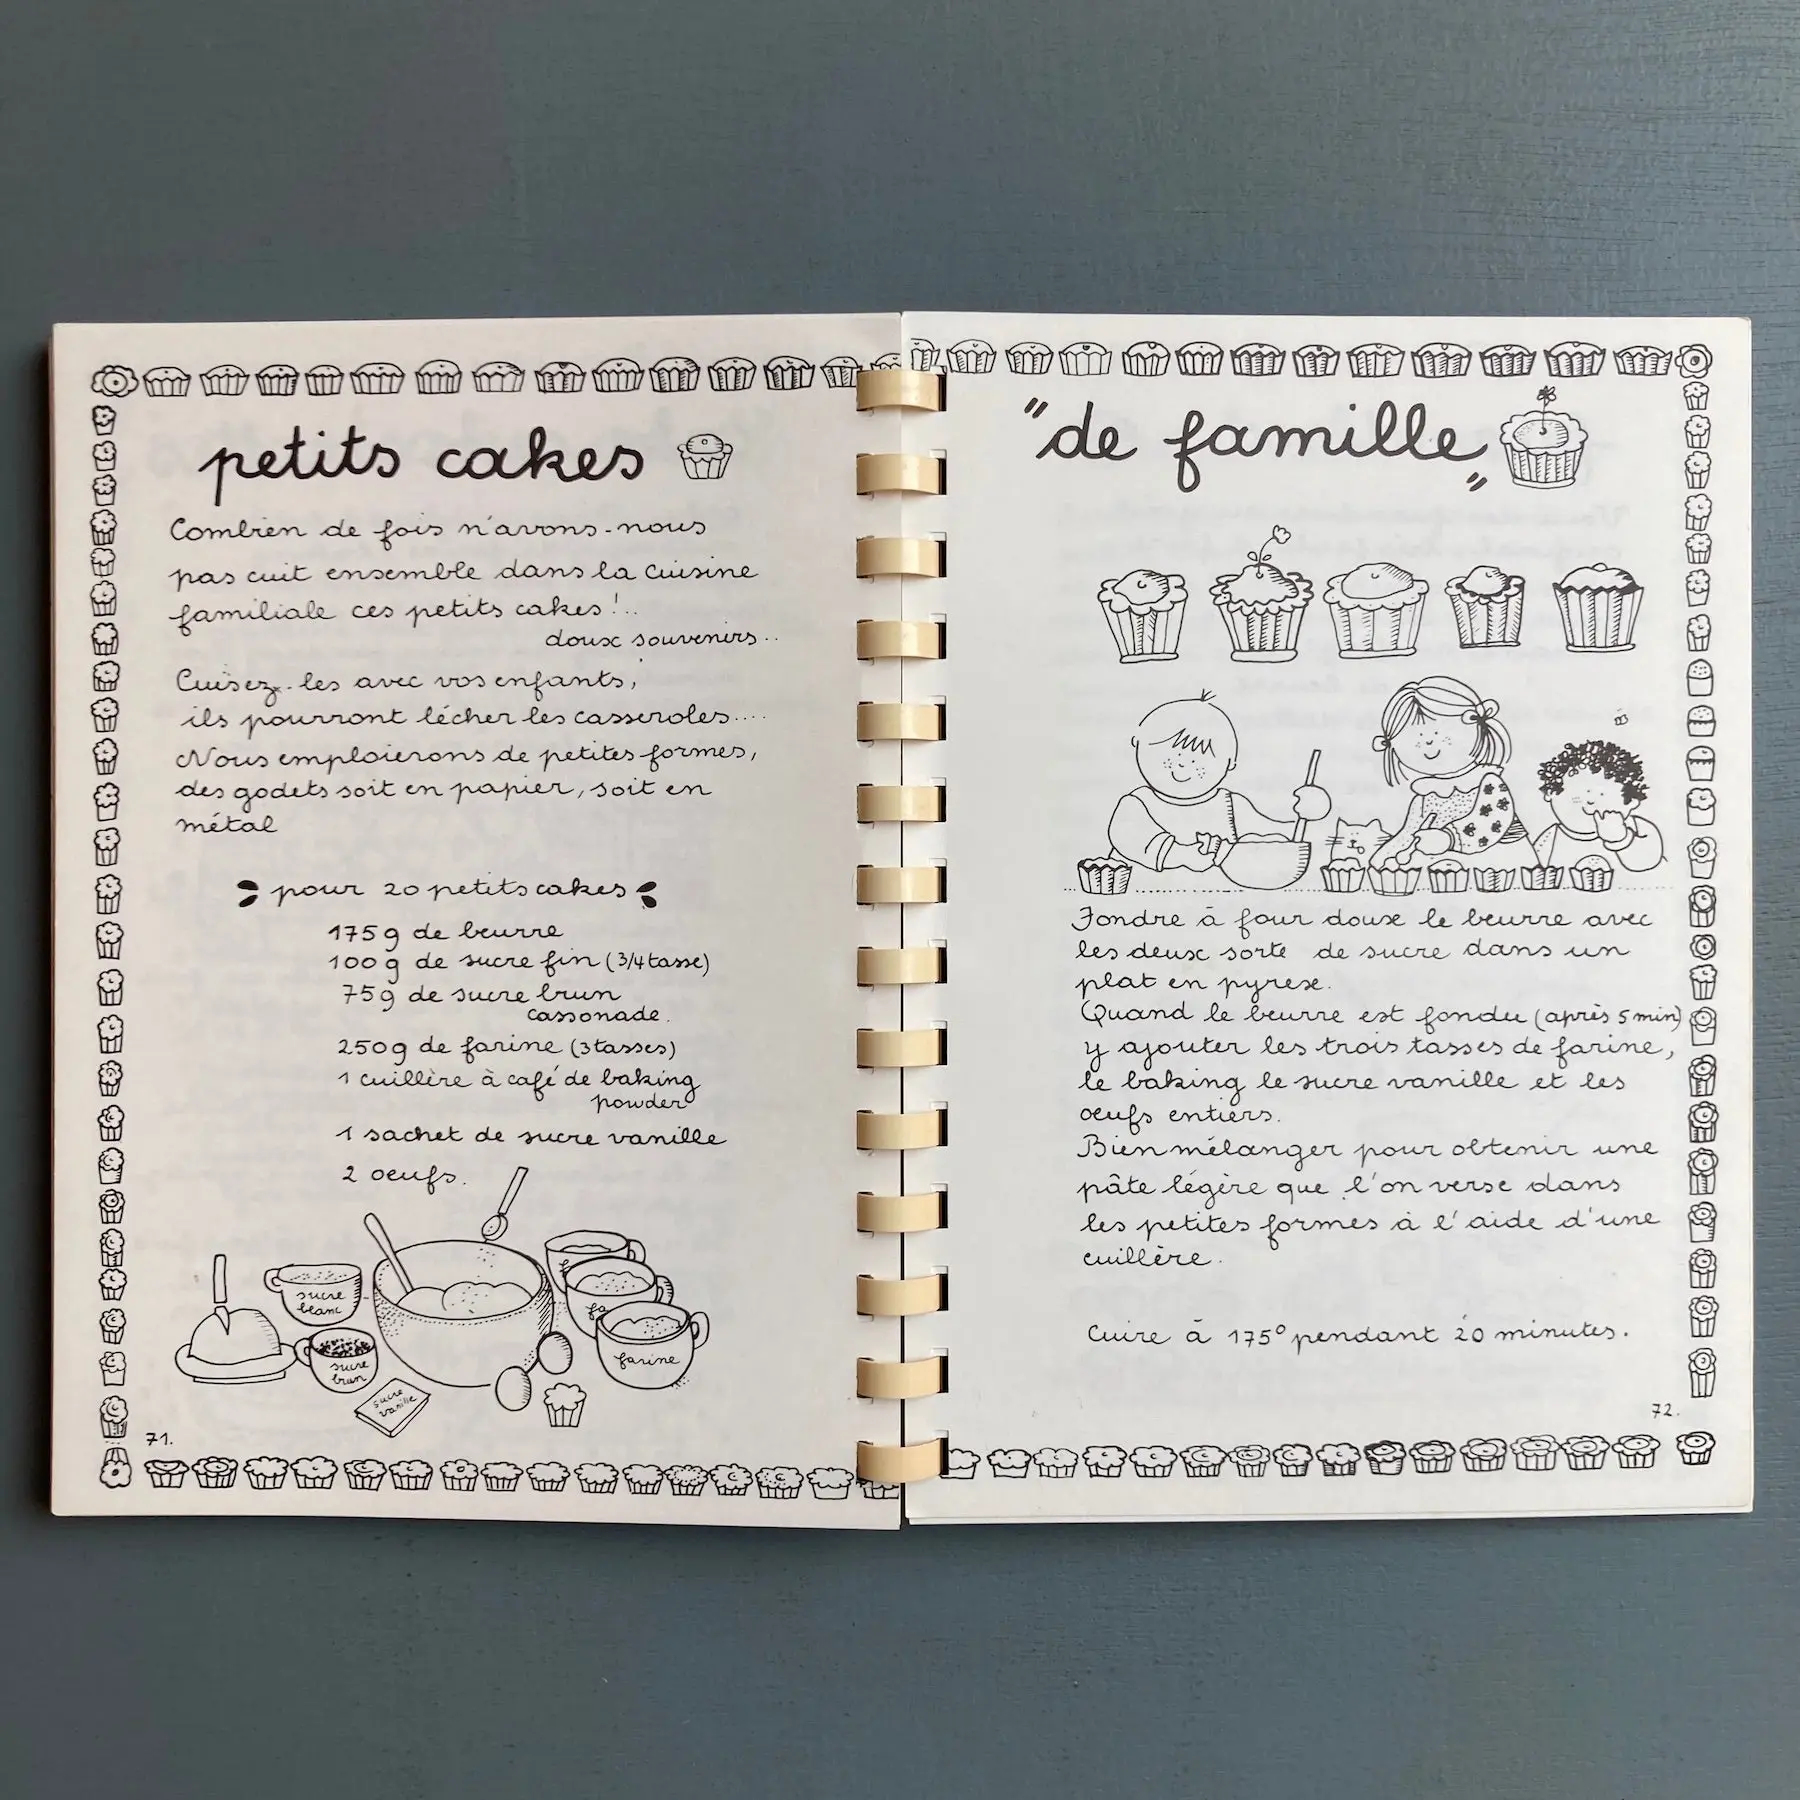 petits cakes
Combien de fois n'avons-nous
pas cuit ensemble dans la cuisine
familiale ces petits cakes!..
doux souvenirs..
Cuisez-les avec vos enfants,
ils pourront lécher les casseroles....
Nous emploierons de petites formes,
des godets soit en papier, soit en
métal
pour 20 petits cakes
175g de beurre
100 g de sucre fin (3/4 tasse)
75g de sucre brun
cassonade.
250g de farine (3 tasses)
1 cuillère à café de baking
powder
1 sachet de sucre vanille
2 oeufs.
sucre
blanc
sucre
brun
sucre
vanille
f
fa
farine
71.
"de famille"
Fondre à four doux le beurre avec
les deux sorte de sucre dans un
plat en pyrex.
Quand le beurre est fondu (après 5 min)
y ajouter les trois tasses de farine,
le baking le sucre vanille et les
oeufs entiers.
Bien mélanger pour obtenir une
pâte légère que l'on verse dans
les petites formes à l'aide d'une
cuillère.
Cuire à 175° pendant 20 minutes.
72.